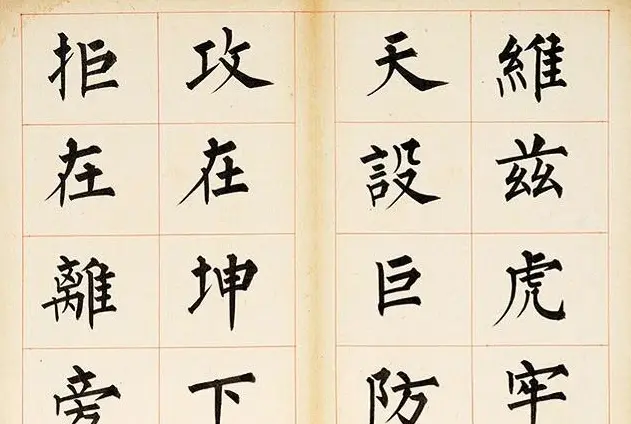 維茲虎牢
天設巨防
攻在坤下
拒在離旁